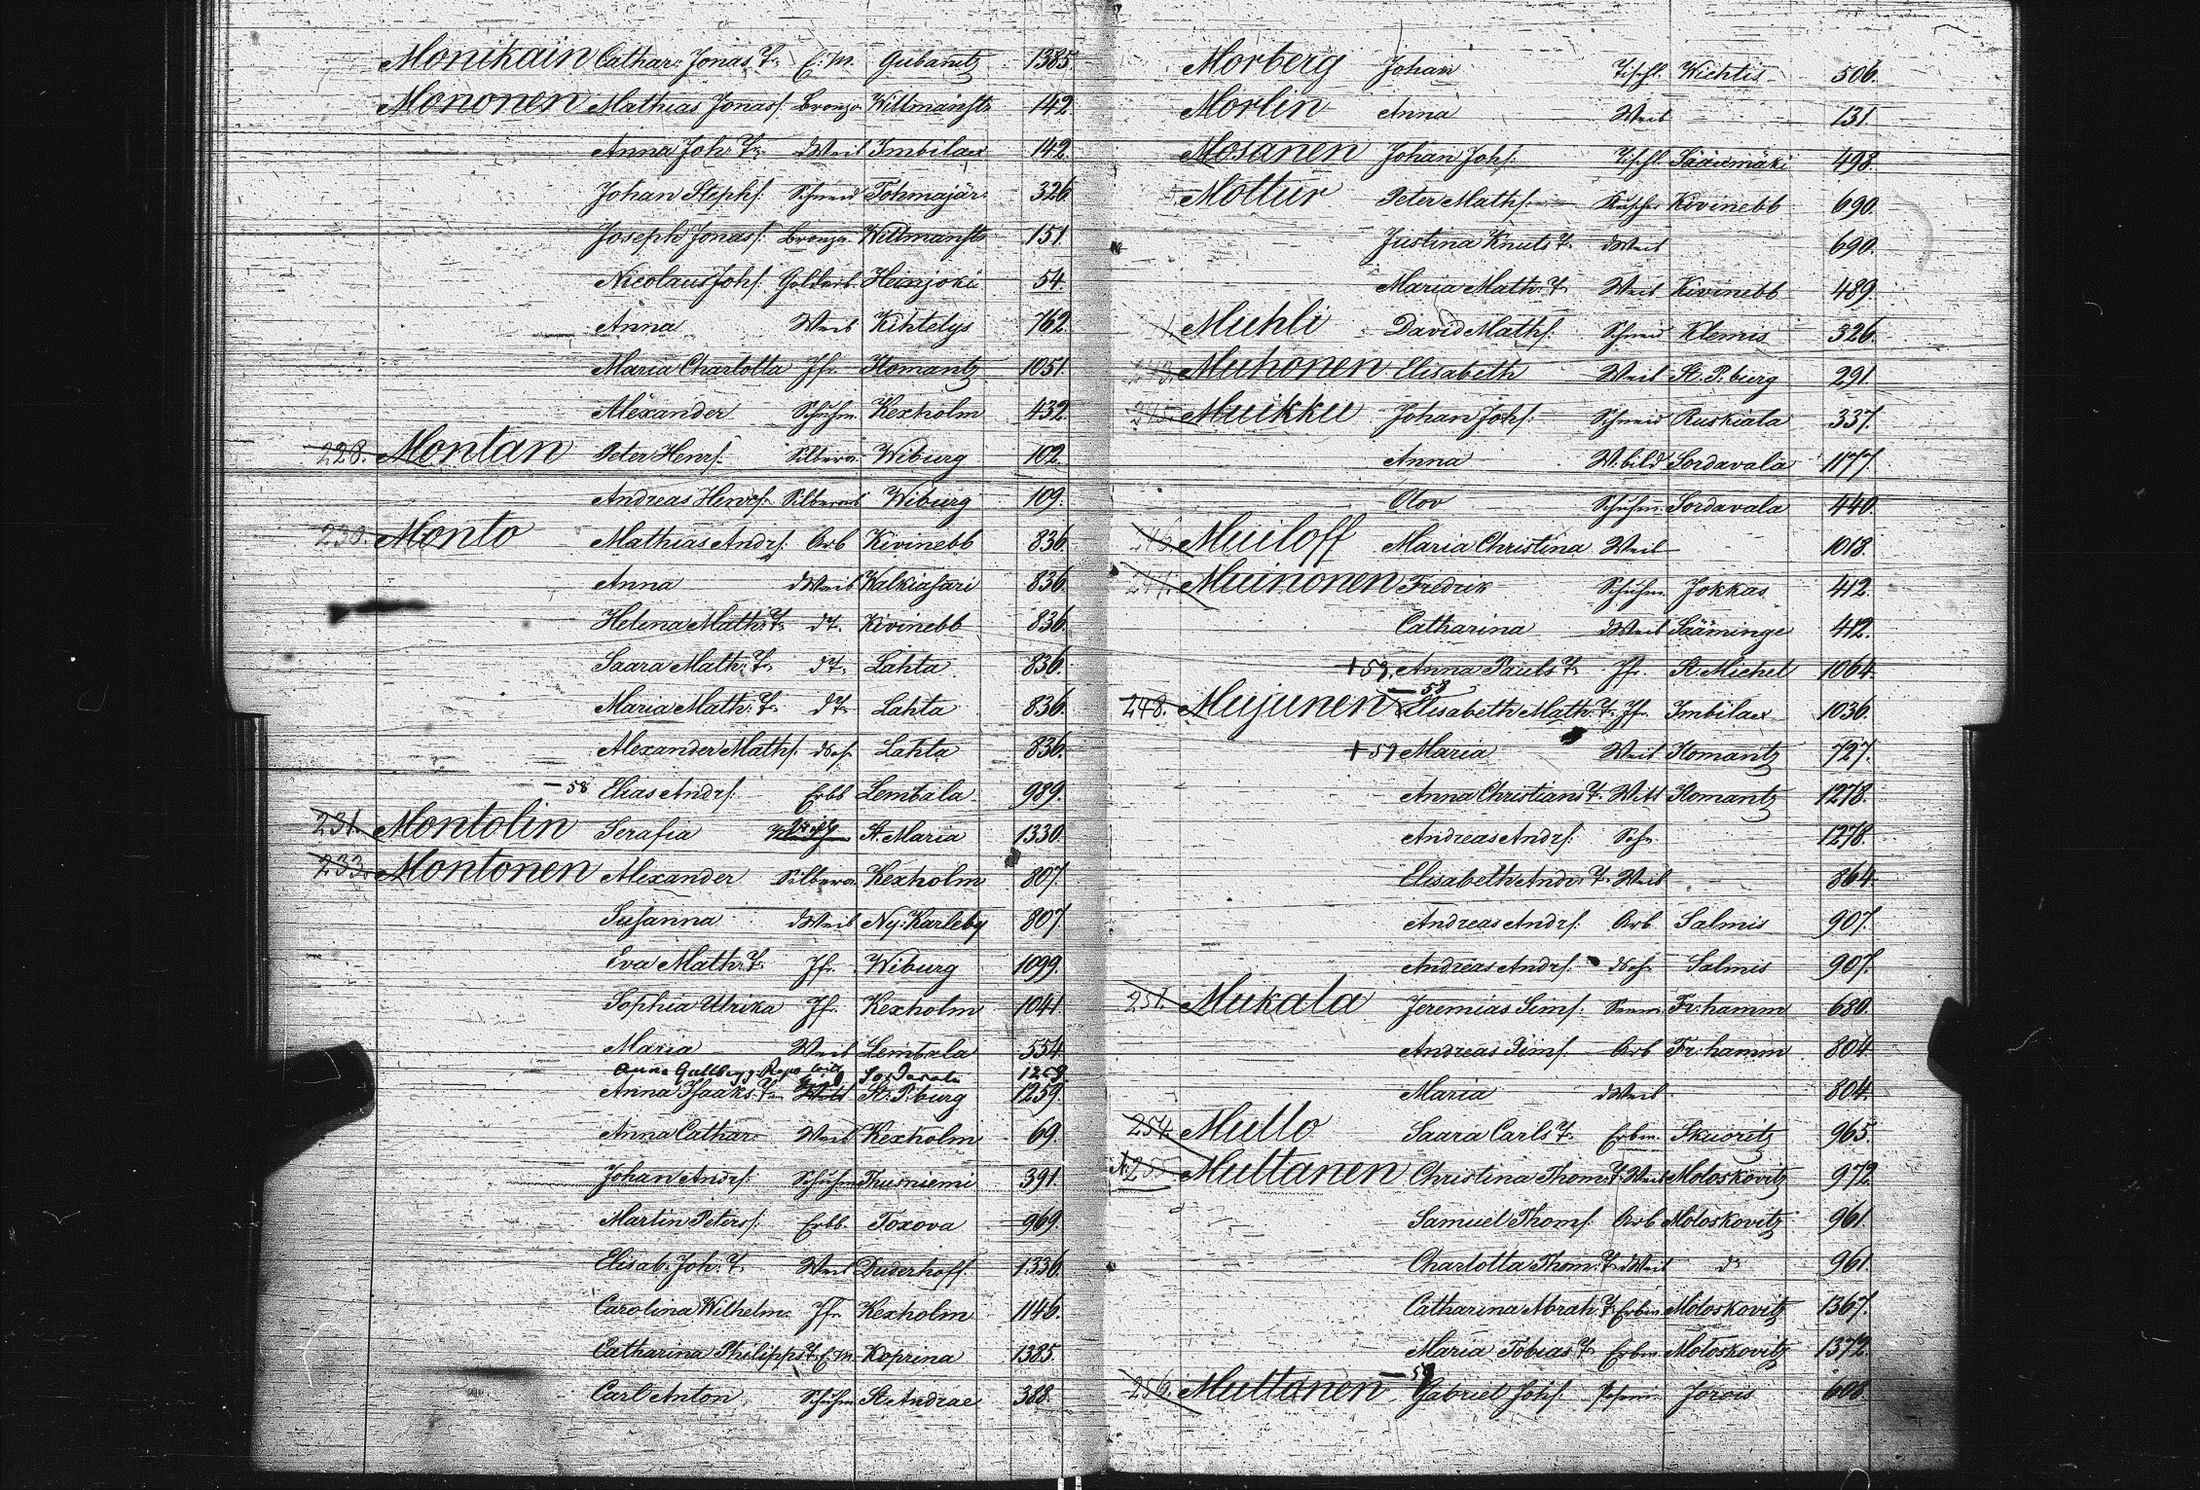 Monikain Cathar. Jonas T. E.M. Gubanitz 1385.
Mononen Mathias Jonass. Bronze Willmanstr 142
Anna Joh. T. dWeib Imbilax 142.
Johan Stephs. Schneid Tohmajär. 326
Joseph Jonass. Bronze Willmanstr 151.
Nicolaus Johs. Goldarb. Heinjoki 54.
Anna Weib Kihtelys 762.
Maria Charlotta Jfr. Ilomantz 1051
Alexander Schuhm. Kexholm 432.
228. Montan Peter Henrs. Silbera. Wiburg 102.
Andreas Henrs. Silberarb Wiburg 109.
230. Monto Mathias Andrs. Arb Kivinebb 836.
Anna dWeib Walkiasari 836.
Helena Math. T. dT. Kivinebb 836.
Saara Math. T. dT. Lahta 836.
Maria Math. T. dT. Lahta 836.
Alexander Maths. dSoh. Lahta 836.
— 58 Elias Andrs. Erbb Lembala 989.
231. Montolin Serafia St. Maria 1330.
233. Montonen Alexander Silbera Kexholm 807.
Susanna dWeib Ny. Karleby 807.
Eva Math. T. Jfr. Wiburg 1099.
Sophia Ulrika Jf. Kexholm 1041.
Maria Weib Lembala 554.
Anna Sordavala 1259.
Anna Isaaks. T. St. P. burg 1259.
Anna Cathar. Weib Kexholm 69.
Johan Andrs. Schuhm Thusniemi 391.
Martin Peters s. Erbb. Toxova 969.
Elisab. Joh. T. Weib Duderhoff 1336.
Carolina Wilhelm. Jfr. Kexholm 1146.
Catharina Philipps T. E.M. Koprina 1385.
Carl Anton Schuhm St Andrae 388.
Morberg Johan Tischl. Wichtis 506.
Morlin Anna Weib 131.
Mosanen Johan Johs. Tischl. Sääiemäki 498.
Mottur Peter Maths. Kutscher Kivinebb 690.
Justina Knuts T. dWeib 690.
Maria Math. T. Weib Kivinebb 489.
Muhli David Maths. Schneid Klemis 326.
Muhonen Elisabeth Weib St. P. burg 291.
Muikku Johan Johs. Schneid Ruskiala 337.
Anna W. bild Sordavala 1177.
Olov Schuhm. Sordavala 440.
Muiloff Maria Christina Weib 1018.
Muinonen Fredrik Schuhm. Jokkas 412.
Catharina dWeib Sääminge 412.
+ 59. Anna Pauls T. Jfr. St. Michel 1064.
— 58
248. Mujunen Elisabeth Math. T. Jf. Imbilax 1036.
+ 59 Maria Weib Ilomantz 727.
Anna Christians T. Witt Ilomantz 1278.
Andreas Andrs. Sohn 1278.
Elisabeth Andr. T. Weib 864.
Andreas Andrs. Arb Salmis 907.
Andreas Andrs. dSoh. Salmis 907.
251. Mukala Jeremias Sims. Seem Fr. hamm 680.
Andreas Sims. Arb Fr. hamm 804.
Maria dWeib 804.
254. Mullo Saara Carls T. Erbm. Skuoritz 965.
255 Multanen Christina Thom. T. Weib Moloskovitz 972.
Samuel Thoms. Arb Moloskovitz 961.
Charlotta Thom. T. dWeib do 961.
Catharina Abrah. T. Erbm Moloskovitz 1367.
Maria Tobias T. Erbm Moloskovitz 1372.
— 59
256. Multanen Gabriel Johs. Jorois 608.